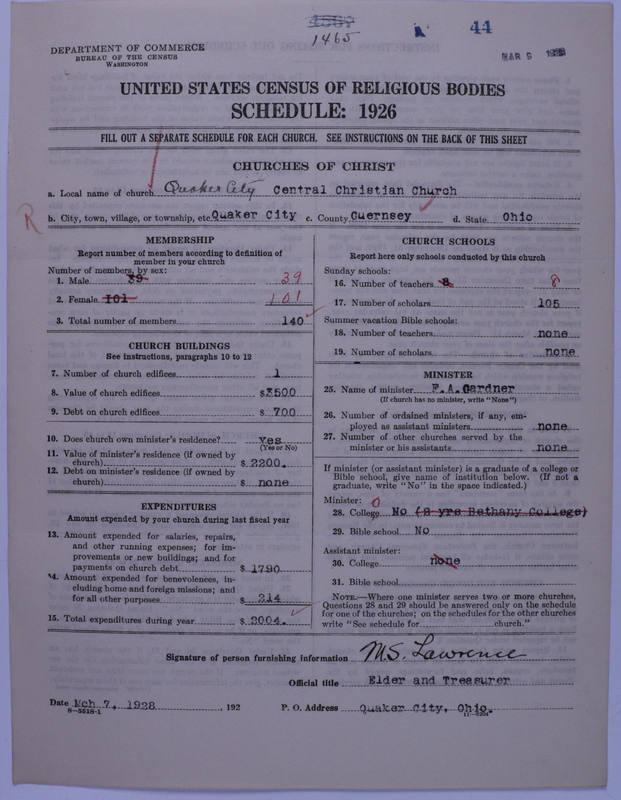 4567
1465
44
MAR 9 1928
DEPARTMENT OF COMMERCE
BUREAU OF THE CENSUS
WASHINGTON
UNITED STATES CENSUS OF RELIGIOUS BODIES
SCHEDULE: 1926
FILL OUT A SEPARATE SCHEDULE FOR EACH CHURCH. SEE INSTRUCTIONS ON THE BACK OF THIS SHEET
CHURCHES OF CHRIST
a. Local name of church Quaker City Central Christian Church
R
b. City, town, village, or township, etc. Quaker City c. County Guernsey d. State Ohio
MEMBERSHIP
Report number of members according to definition of
member in your church
Number of members, by sex:
1. Male 39 39
2. Female 101 101
3. Total number of members 140
CHURCH BUILDINGS
See instructions, paragraphs 10 to 12
7. Number of church edifices 1
8. Value of church edifices $3500
9. Debt on church edifices $ 700
10. Does church own minister's residence? Yes
(Yes or No)
11. Value of minister's residence (if owned by
church) $ 2200.
12. Debt on minister's residence (if owned by
church) $ none
EXPENDITURES
Amount expended by your church during last fiscal year
13. Amount expended for salaries, repairs,
and other running expenses; for im-
provements or new buildings; and for
payments on church debt $ 1790
14. Amount expended for benevolences, in-
cluding home and foreign missions; and
for all other purposes $ 214
15. Total expenditures during year $ 2004.
CHURCH SCHOOLS
Report here only schools conducted by this church
Sunday schools:
16. Number of teachers 8 8
17. Number of scholars 105
Summer vacation Bible schools:
18. Number of teachers none
19. Number of scholars none
MINISTER
25. Name of minister F.A.Gardner
(If church has no minister, write "None")
26. Number of ordained ministers, if any, em-
ployed as assistant ministers none
27. Number of other churches served by the
minister or his assistants none
If minister (or assistant minister) is a graduate of a college or
Bible school, give name of institution below. (If not a
graduate, write "No" in the space indicated.)
Minister: 0
28. College No (2 yrs Bethany College)
29. Bible school No
Assistant minister:
30. College none
31. Bible school
NOTE.—Where one minister serves two or more churches,
Questions 28 and 29 should be answered only on the schedule
for one of the churches; on the schedules for the other churches
write "See schedule for church."
Signature of person furnishing information M.S. Lawrence
Official title Elder and Treasurer
Date Mch 7, 1928 , 192 P. O. Address Quaker City, Ohio.
8—5518-1